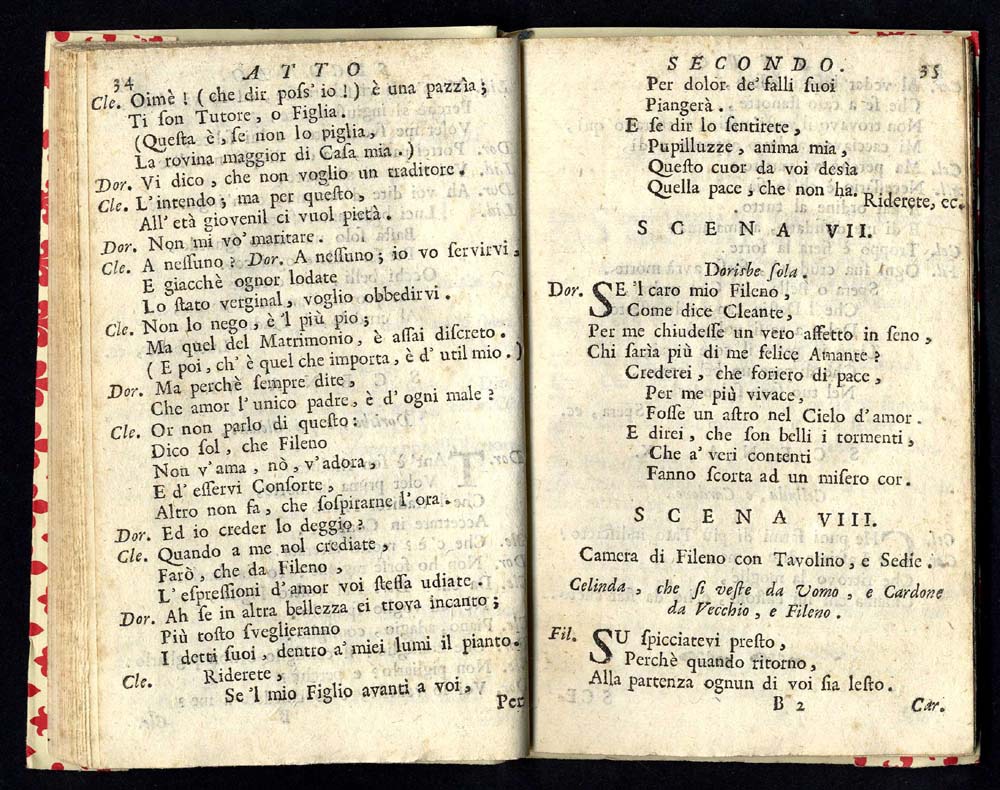 34
ATTO
Cle. Oimè ! ( che dir poſs' io ! ) è una pazzìa ;
Ti ſon Tutore, o Figlia .
( Queſta è , ſe non lo piglia ,
La rovina maggior di Caſa mia . )
Dor. Vi dico , che non voglio un traditore .
Cle. L'intendo ; ma per queſto ,
All' età giovenil ci vuol pietà .
Dor. Non mi vo' maritare .
Cle. A neſſuno ? Dor. A neſſuno ; io vo ſervirvi ,
E giacchè ognor lodate
Lo ſtato verginal , voglio obbedirvi .
Cle. Non lo nego , è 'l più pio ;
Ma quel del Matrimonio , è aſſai diſcreto .
( E poi , ch' è quel che importa , è d' util mio . )
Dor. Ma perchè ſempre dite ,
Che amor l'unico padre , è d' ogni male ?
Cle. Or non parlo di queſto :
Dico ſol , che Fileno
Non v'ama , nò , v'adora ,
E d' eſſervi Conſorte ,
Altro non fa , che ſoſpirarne l'ora .
Dor. Ed io creder lo deggio ?
Cle. Quando a me nol crediate ,
Farò , che da Fileno ,
L' eſpreſſioni d'amor voi ſteſſa udiate .
Dor. Ah ſe in altra bellezza ei trova incanto ;
Più toſto ſveglieranno
I detti ſuoi , dentro a' miei lumi il pianto .
Cle. Riderete ,
Se 'l mio Figlio avanti a voi ,
Per
SECONDO.
35
Per dolor de' falli ſuoi
Piangerà .
E ſe dir lo ſentirete ,
Pupilluzze , anima mia ,
Queſto cuor da voi desìa
Quella pace , che non ha .
Riderete, ec.
SCENA VII.
Dorisbe ſola .
Dor. SE 'l caro mio Fileno ,
Come dice Cleante ,
Per me chiudeſſe un vero affetto in ſeno ,
Chi ſarìa più di me felice Amante ?
Crederei , che foriero di pace ,
Per me più vivace ,
Foſſe un aſtro nel Cielo d'amor .
E direi , che ſon belli i tormenti ,
Che a' veri contenti
Fanno ſcorta ad un miſero cor .
SCENA VIII.
Camera di Fileno con Tavolino , e Sedie .
Celinda , che ſi veſte da Uomo , e Cardone
da Vecchio , e Fileno .
Fil. SU ſpicciatevi preſto ,
Perchè quando ritorno ,
Alla partenza ognun di voi ſia leſto .
B 2
Car.